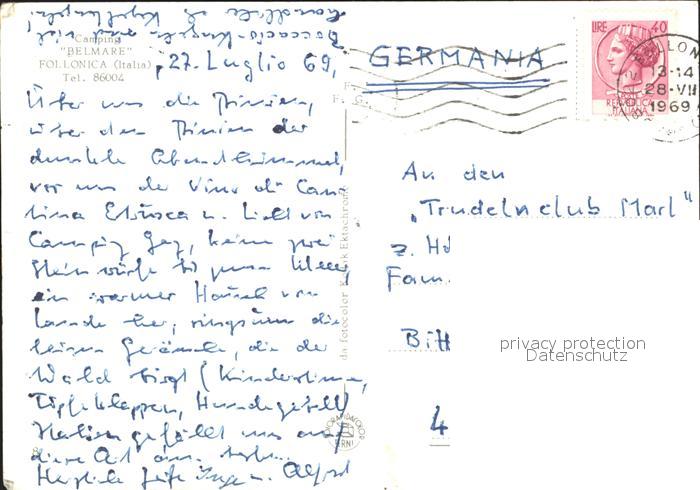 Boccaccia-Kugeln und viel
Camping
"BELMARE"
FOLLONICA (Italia)
Tel. 86004
27. Luglio 69,
Über uns die Pinien,
über den Pinien der
dunkle Abendhimmel,
vor uns der Vino di Can-
tina Etrusca u. Licht von
Camping Gaz, keine zwei
Steinwürfe bis zum Meer,
ein warmer Hauch vom
Lande her, ringsum die
leisen Geräusche, die der
Wald birgt (Kinderstimmen,
Töpfeklappern, Hundegebell)
Italien gefällt uns auf
diese Art am besten...
Herzliche Grüße Inge u. Alfred
da fotocolor Kodak Ektachrome
GERMANIA
LIRE 40
REPVBBLICA
ITALIANA
FOLLONICA
13-14
28-VII
1969
An den
„Trudelnclub Marl"
z. Hd
Fam.
Bitt
privacy protection
Datenschutz
4